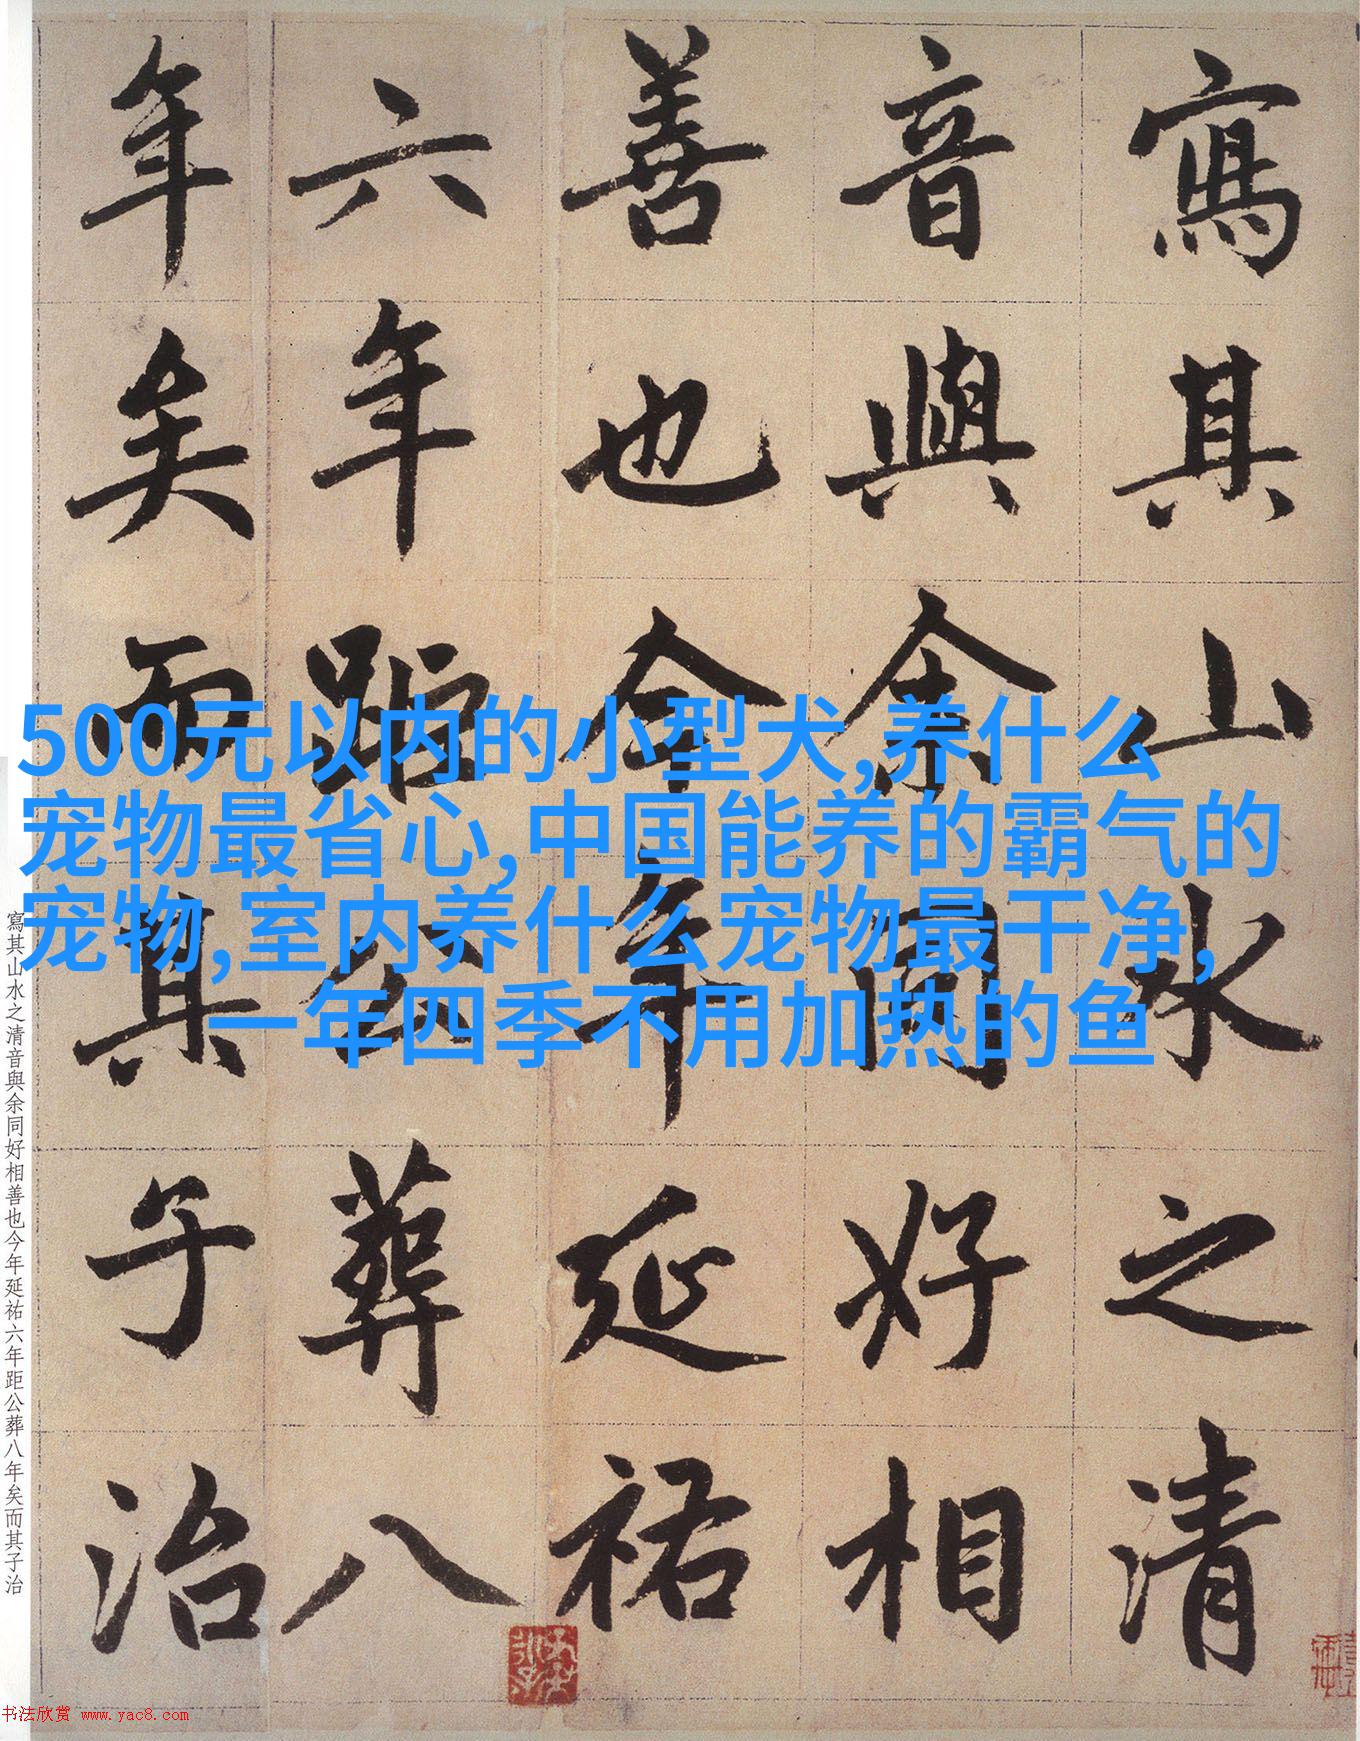 寫其山水之清
音與余同好相
善也今年延祐
六年距公葬八
年矣而其子治
500元以内的小型犬,养什么
宠物最省心,中国能养的霸气的
宠物,室内养什么宠物最干净,
一年四季不用加热的鱼
寫其山水之清音與余同好相善也今年延祐六年距公葬八年矣而其子治
书法欣赏 www.yac8.com